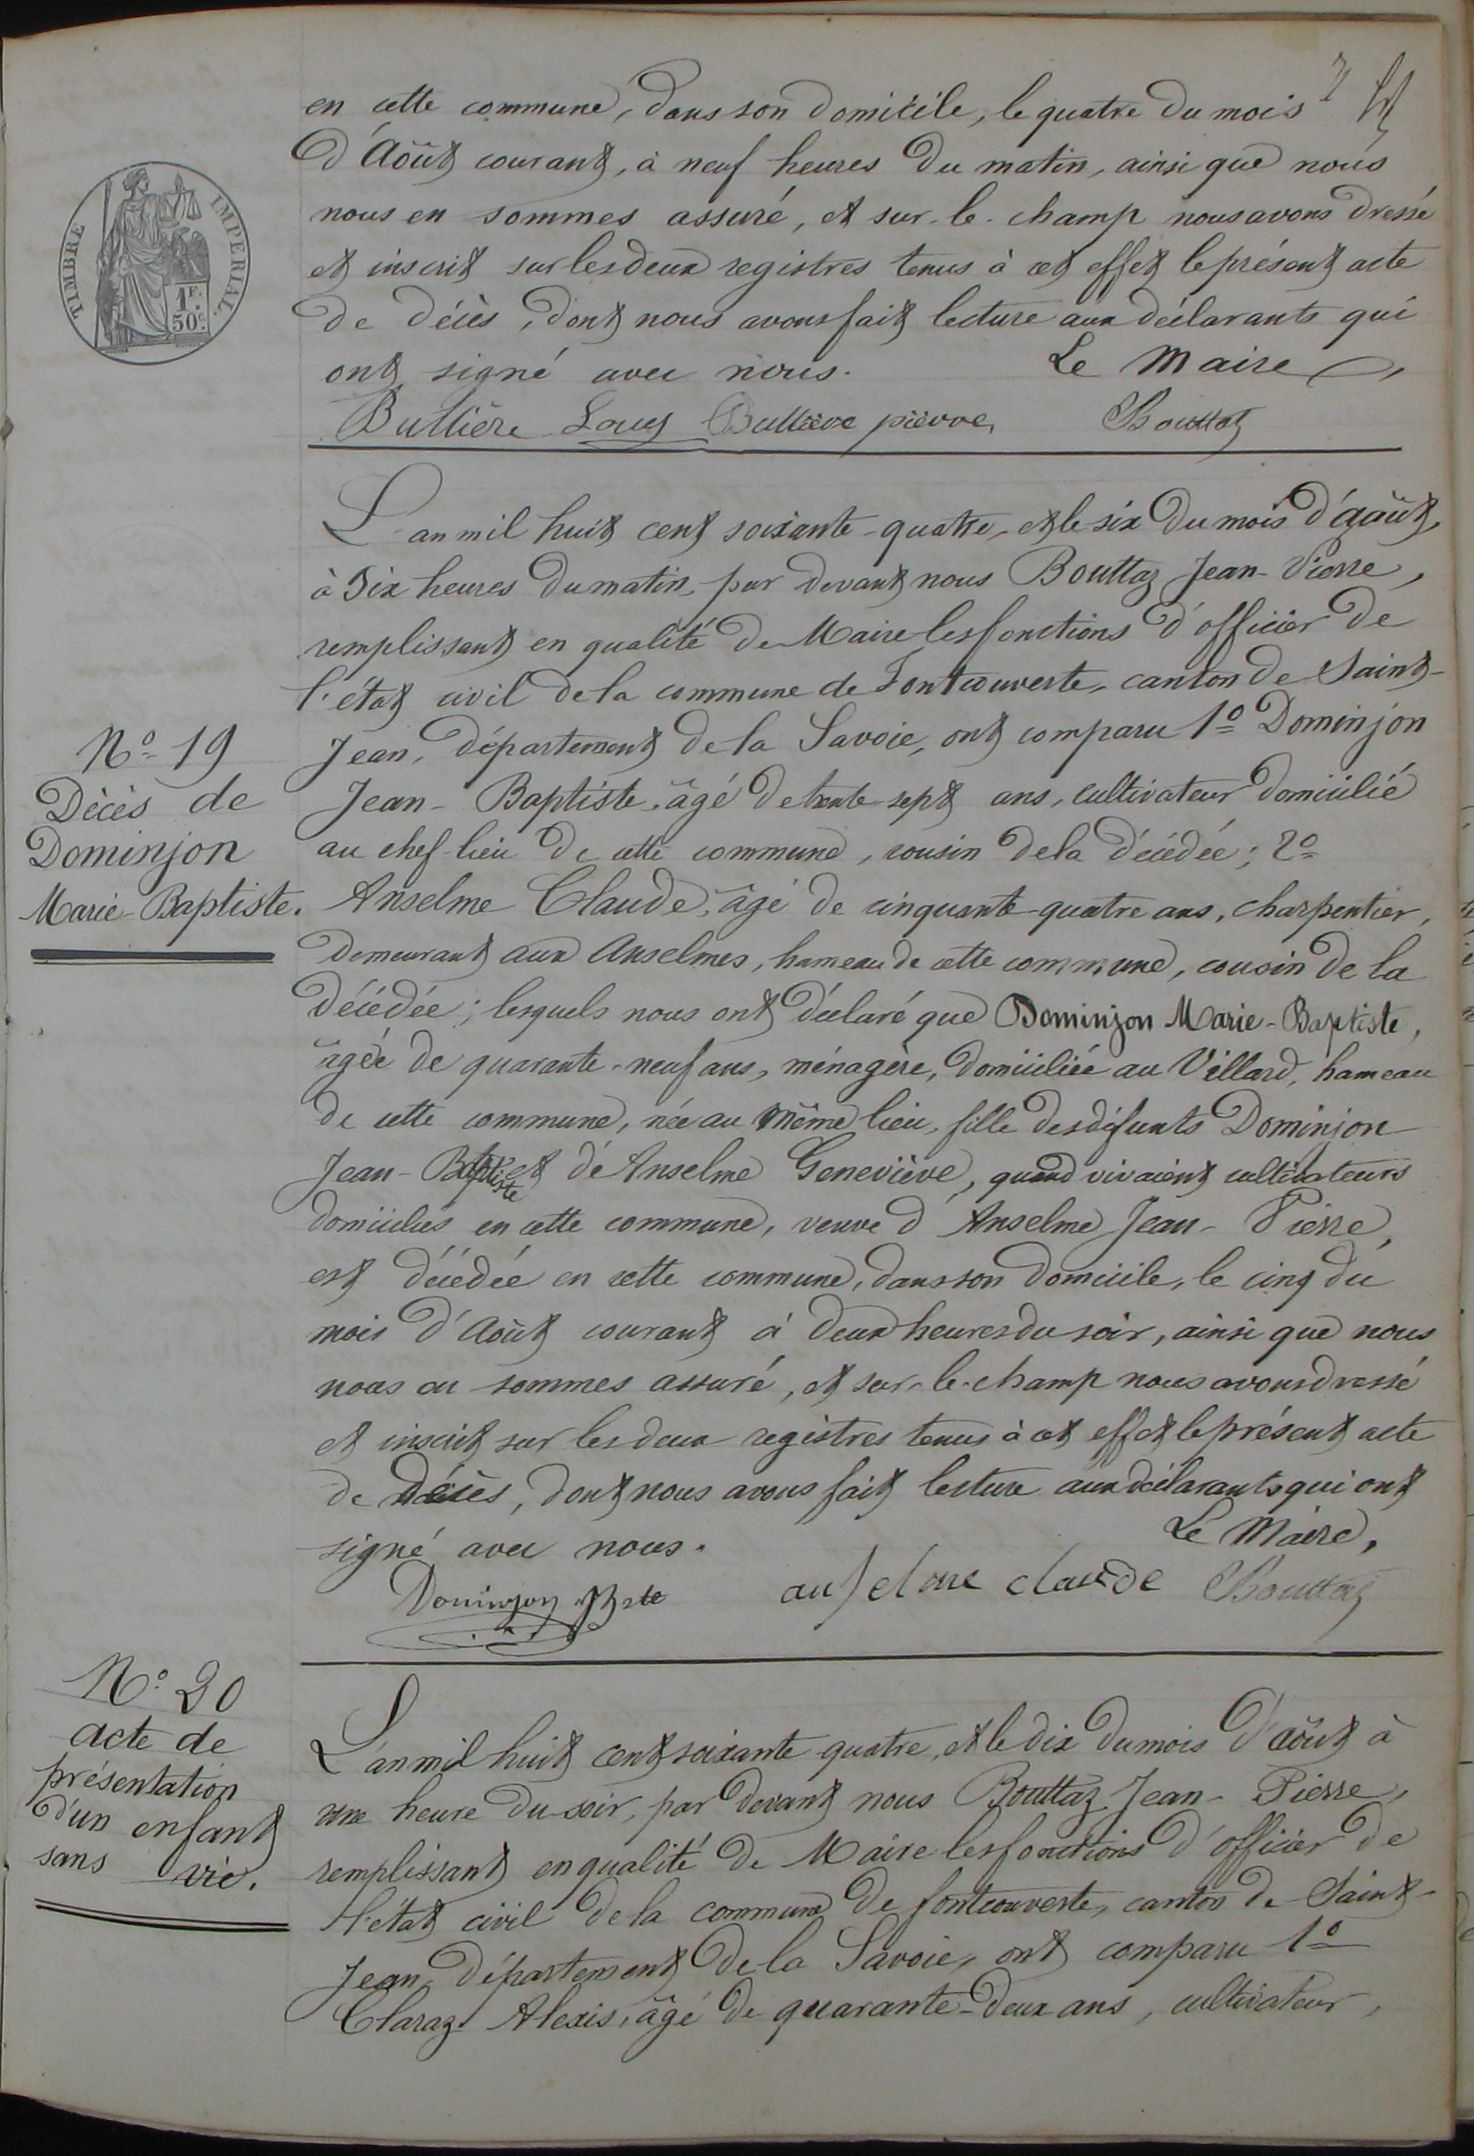 en cette commune, dans son domicile, le quatre du mois
d'Août courant, à neuf heures du matin, ainsi que nous
nous en sommes assuré, et sur-le-champ nous avons dressé
et inscrit sur les deux registres tenus à cet effet le présent acte
de décès, dont nous avons fait lecture aux déclarants qui
ont signé avec nous. Le Maire,
Bullière Louis Bullière pierre, Bouttaz
TIMBRE IMPERIAL
1F.
50C.
L'an mil huit cent soixante-quatre, et le six du mois d'août,
à dix heures du matin par devant nous Bouttaz Jean-Pierre,
remplissant en qualité de Maire les fonctions d'officier de
l'état civil de la commune de Fontcouverte, canton de Saint-
Jean, département de la Savoie, ont comparu 1º Dominjon
Jean-Baptiste, âgé de trente-sept ans, cultivateur domicilié
au chef-lieu de cette commune, cousin de la décédée; 2º
Anselme Claude, âgé de cinquante-quatre ans, charpentier,
demeurant aux Anselmes, hameau de cette commune, cousin de la
décédée; lesquels nous ont déclaré que Dominjon Marie-Baptiste,
âgée de quarante-neuf ans, ménagère, domiciliée au Villard, hameau
de cette commune, née au même lieu, fille des défunts Dominjon
Jean-Baptiste et de Anselme Geneviève, quand vivaient cultivateurs
domiciliés en cette commune, veuve d'Anselme Jean-Pierre,
est décédée en cette commune, dans son domicile, le cinq du
mois d'Août courant à deux heures du soir, ainsi que nous
nous en sommes assuré, et sur-le-champ nous avons dressé
et inscrit sur les deux registres tenus à cet effet le présent acte
de décès, dont nous avons fait lecture aux déclarants qui ont
signé avec nous. Le Maire,
Dominjon JBste anselme claude Bouttaz
Nº 19
Décès de
Dominjon
Marie-Baptiste.
Nº 20
acte de
présentation
d'un enfant
sans vie.
L'an mil huit cent soixante quatre, et le dix du mois d'août à
une heure du soir, par devant nous Bouttaz Jean-Pierre,
remplissant en qualité de Maire les fonctions d'officier de
l'état civil de la commune de fontcouverte, canton de Saint-
Jean, département de la Savoie, ont comparu 1º
Claraz Alexis, âgé de quarante-deux ans, cultivateur,